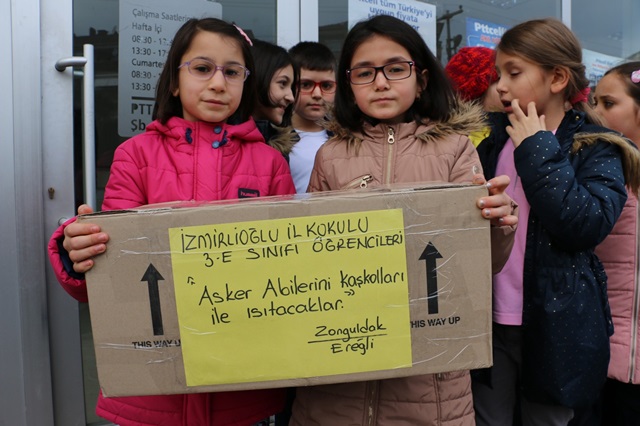 Çalışma Saatlerimiz
Hafta İçi
08:30 -
13:30 - 17
Cumartesi
08:30
13:
PTT
Şb
tüm Türkiye'yi
uygun fiyata
Pttcell
İZMİRLİOĞLU İLKOKULU
3-E SINIFI ÖĞRENCİLERİ
"Asker Abilerini Kaşkolları
ile Isıtacaklar."
Zonguldak
Ereğli
THIS WAY UP
THIS WAY UP